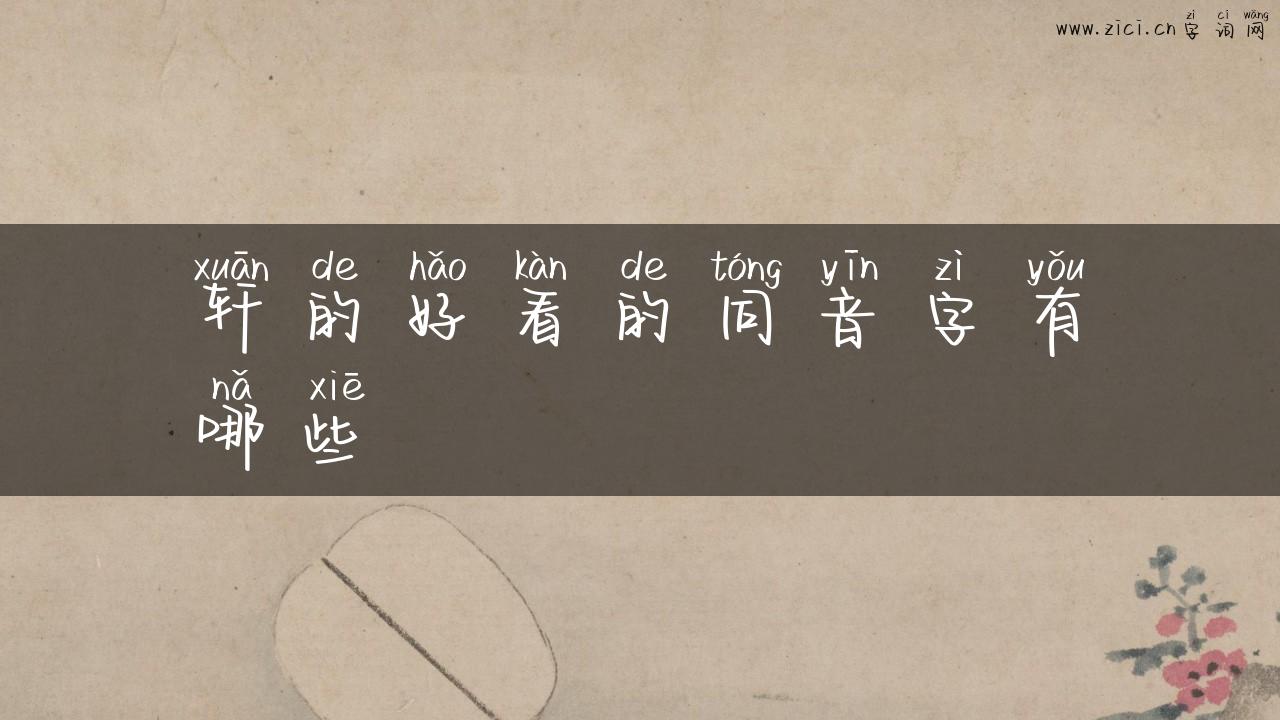 zì cí wǎng
www.zici.cn字词网
xuān de hǎo kàn de tóng yīn zì yǒu
轩的好看的同音字有
nǎ xiē
哪些